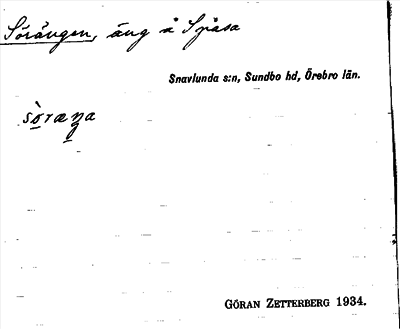 Sörängen, äng å Spåsa
Snavlunda s:n, Sundbo hd, Örebro län.
sòræŋa
GÖRAN ZETTERBERG 1934.